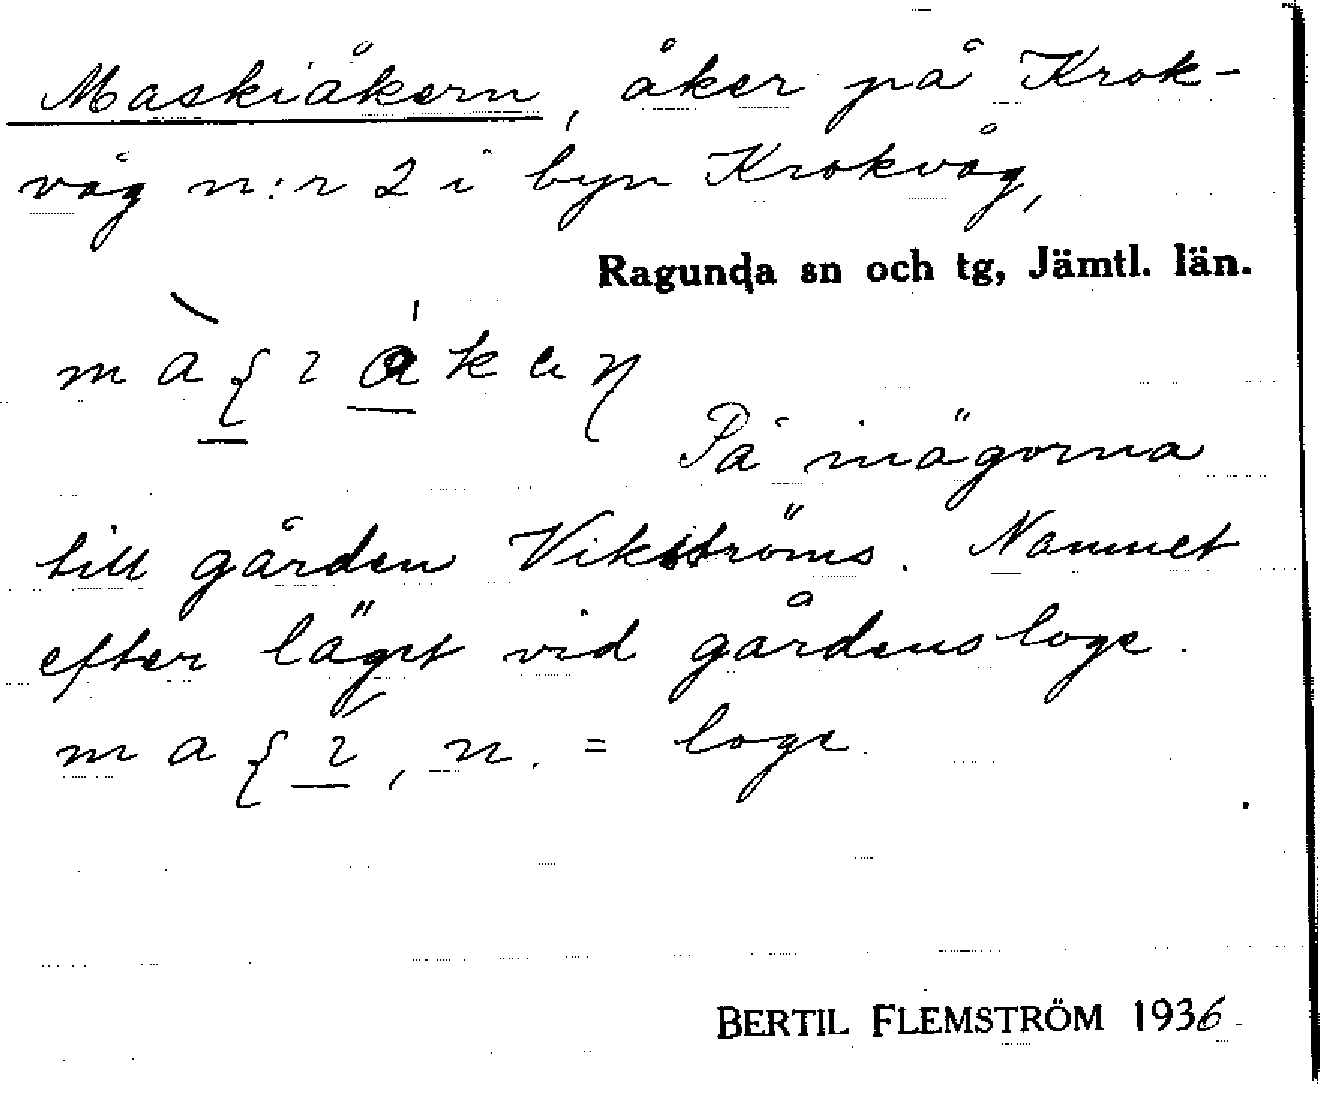 Maskiåkern, åker på Krok-
våg n:r 2 i byn Krokvåg,
Ragunda sn och tg, Jämtl. län.
På inägorna
till gården Vikströms. Namnet
efter läget vid gårdens loge.
n. = loge.
BERTIL FLEMSTRÖM 1936